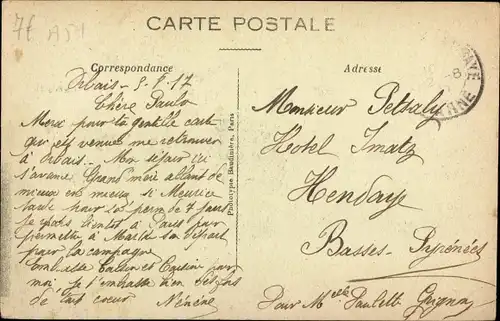 7f A51
CARTE POSTALE
Correspondance
Adresse
Orbais - 5-8-17
Chère Paulo
Merci pour ta gentille carte
qui est venue me retrouver
à Orbais. Mon séjour ici
s'avance Grand'mère allant de
mieux en mieux si Meurice
pour sa perm de 7 jours
je pars bientôt à Paris pour
permettre à Marthe son départ
pour la campagne
embrasse et par
moi je t'embrasse bien
de tout cœur Nénène
Phototypie Baudinière, Paris
Monsieur Petsaly
Hotel Imatz
Hendaye
Basses-Pyrénées
Pour Melle Paulette